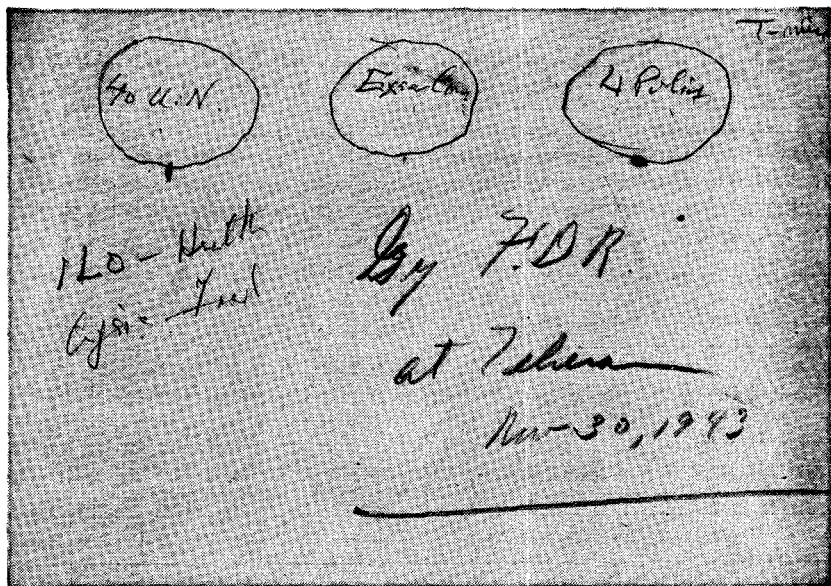 40 U.N.
Exec Com
4 Police
ILO – Health
Agric – Food
By F.D.R.
at Teheran
Nov 30, 1943